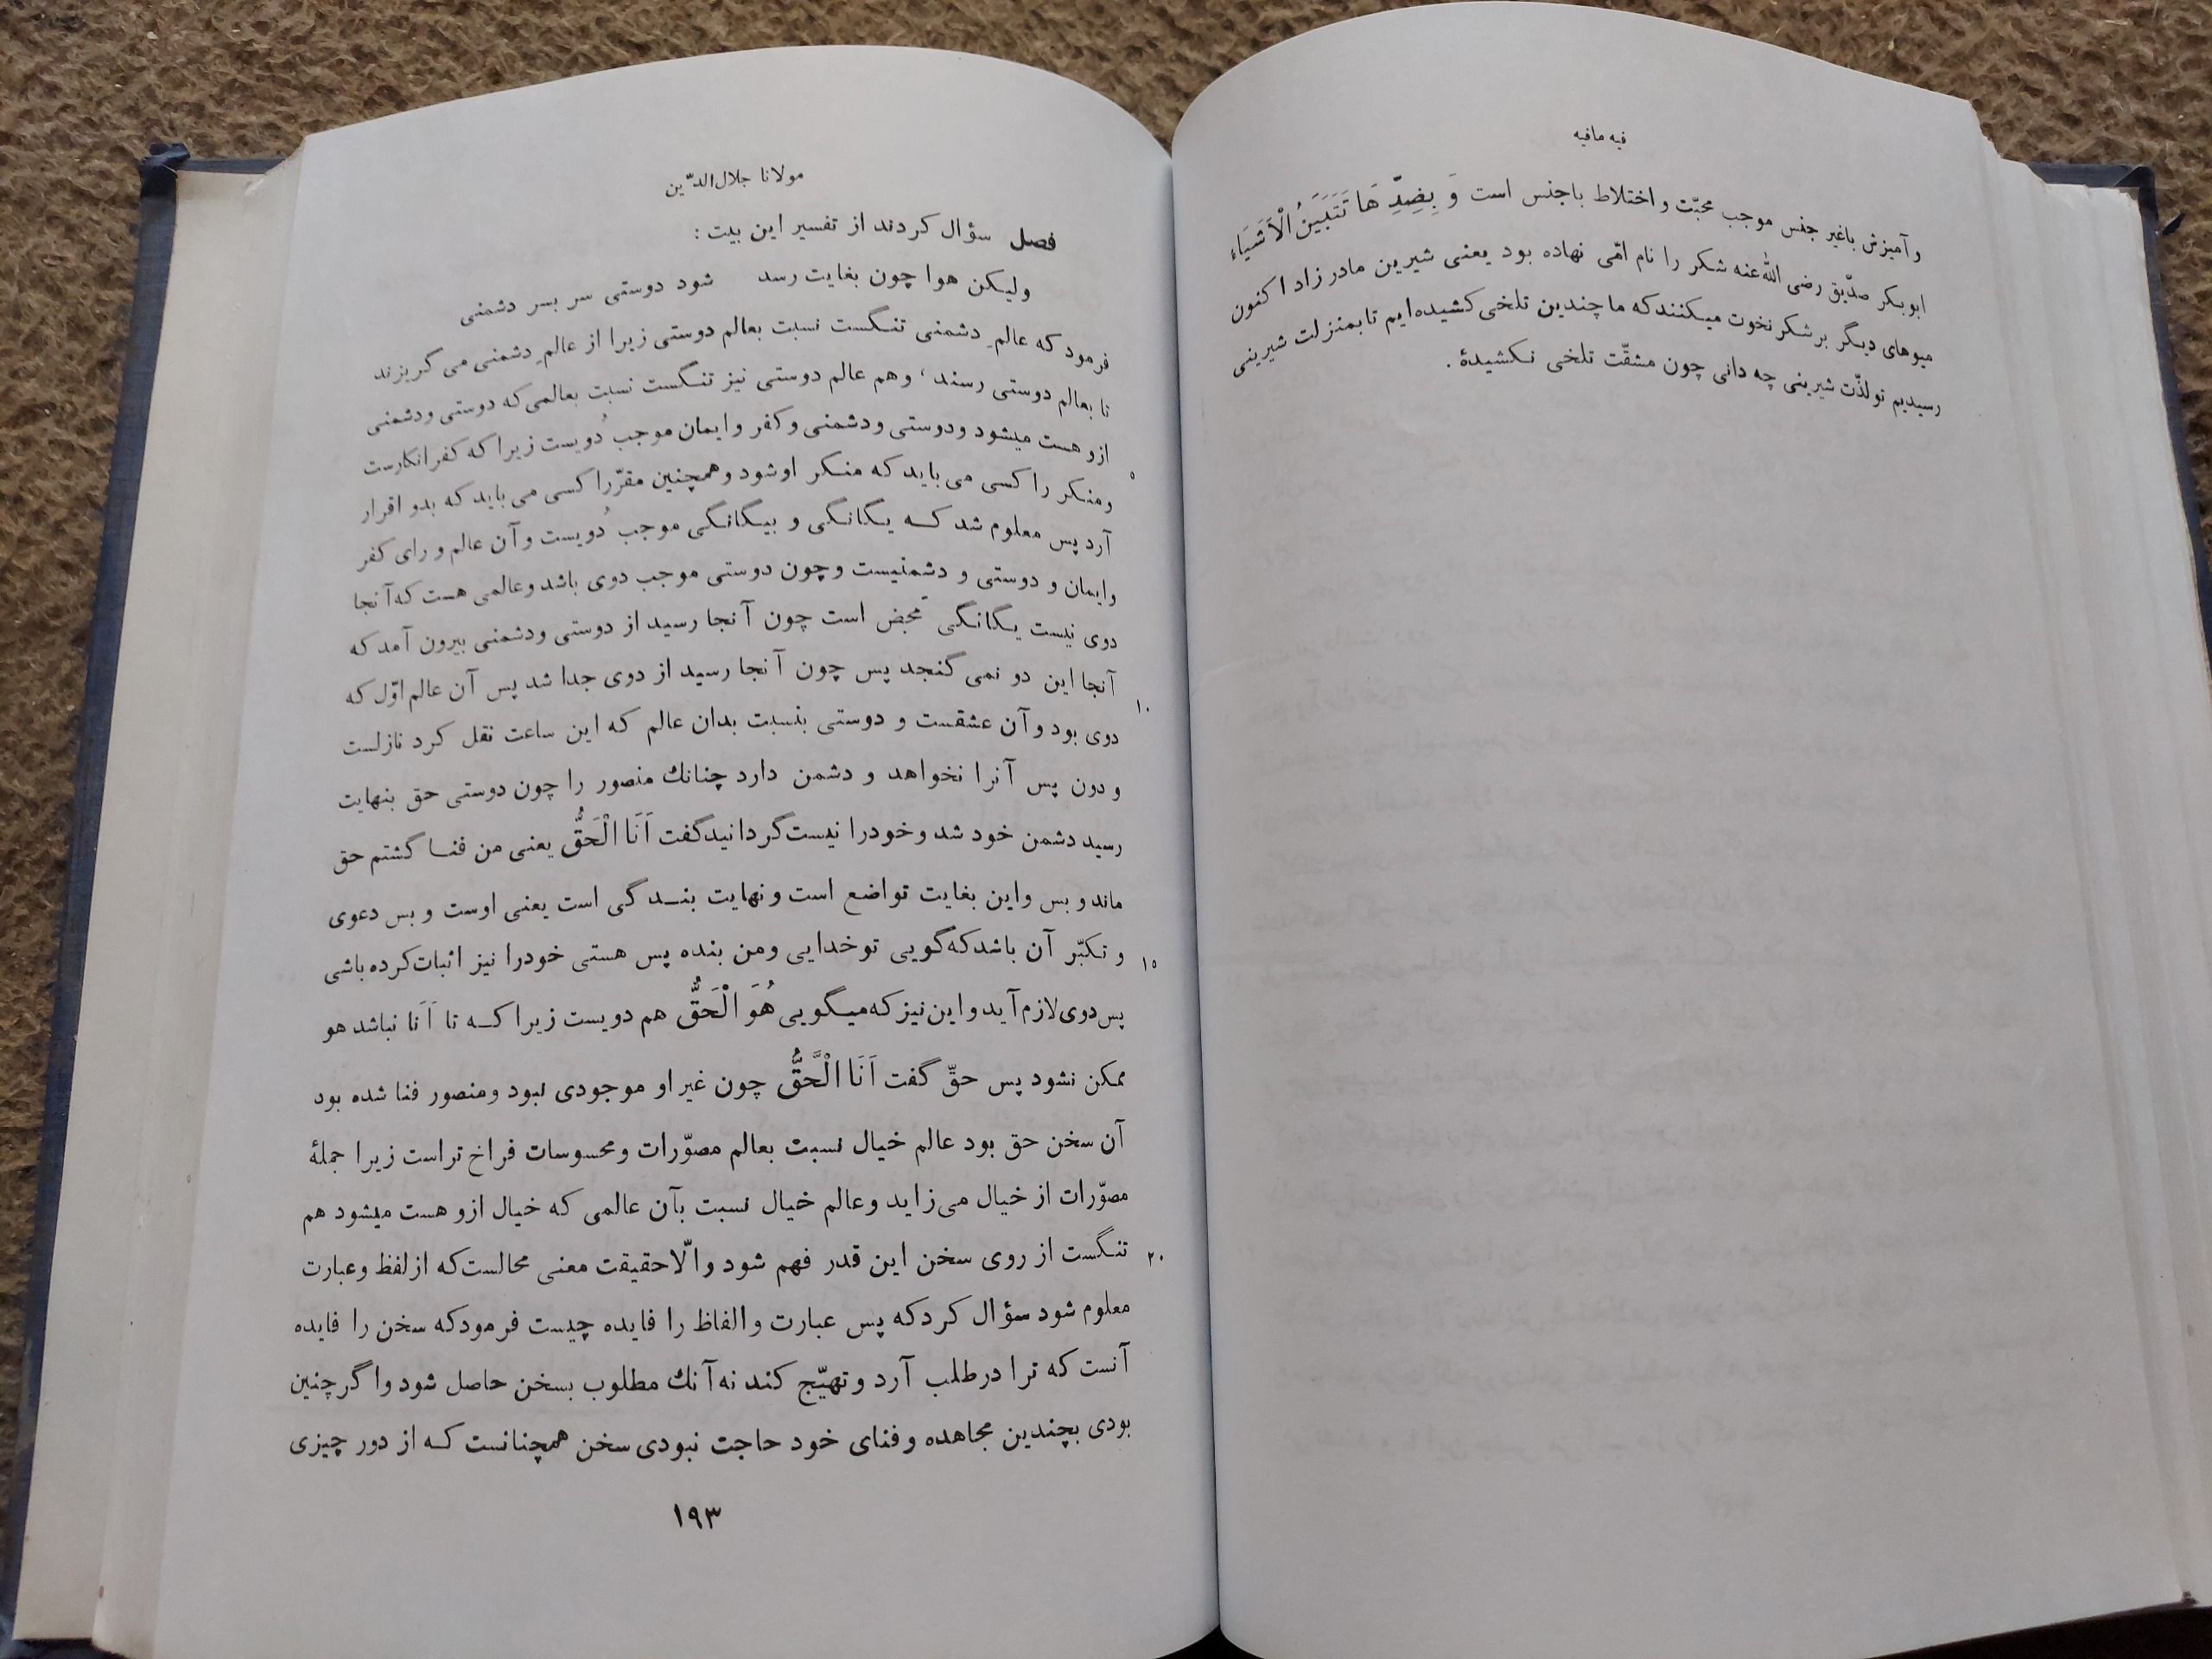 فیه مافیه
و آمیزش باغیر جنس موجب محبّت و اختلاط باجنس است وَ بِضِدِّهَا تَتَبَيَّنُ الْاَشْيَاء
ابوبکر صدّیق رضی اللّه عنه شکر را نام امّی نهاده بود یعنی شیرین مادر زاد اکنون
میوهای دیگر بر شکر نخوت میکنند که ما چندین تلخی کشیده‌ایم تا بمنزلت شیرینی
رسیدیم تو لذّت شیرینی چه دانی چون مشقّت تلخی نکشیدهٔ .
مولانا جلال‌الدّین
فصل سؤال کردند از تفسیر این بیت :
ولیکن هوا چون بغایت رسد شود دوستی سر بسر دشمنی
فرمود که عالمِ دشمنی تنگست نسبت بعالم دوستی زیرا از عالمِ دشمنی می گریزند
تا بعالم دوستی رسند ، وهم عالم دوستی نیز تنگست نسبت بعالمی که دوستی ودشمنی
ازو هست میشود ودوستی ودشمنی وکفر وایمان موجب دُویست زیرا که کفر انکارست ۵
ومنکر را کسی می باید که منکر او شود وهمچنین مقرّ را کسی می باید که بدو اقرار
آرد پس معلوم شد که یگانگی و بیگانگی موجب دُویست وآن عالم ورای کفر
وایمان و دوستی و دشمنیست وچون دوستی موجب دوی باشد وعالمی هست که آنجا
دوی نیست یگانگی محض است چون آنجا رسید از دوستی ودشمنی بیرون آمد که
آنجا این دو نمی گنجد پس چون آنجا رسید از دوی جدا شد پس آن عالم اوّل که ۱۰
دوی بود وآن عشقست و دوستی بنسبت بدان عالم که این ساعت نقل کرد نازلست
و دون پس آنرا نخواهد و دشمن دارد چنانك منصور را چون دوستی حق بنهایت
رسید دشمن خود شد وخودرا نیست گردانید گفت اَنَا الْحَقُّ یعنی من فنا گشتم حق
ماند و بس واین بغایت تواضع است ونهایت بندگی است یعنی اوست و بس دعوی
و تکبّر آن باشد که گویی تو خدایی ومن بنده پس هستی خودرا نیز اثبات کرده باشی ۱۵
پس دوی لازم آید واین نیز که میگویی هُوَ الْحَقُّ هم دویست زیرا که تا اَنَا نباشد هو
ممکن نشود پس حقّ گفت اَنَا الْحَقُّ چون غیر او موجودی نبود ومنصور فنا شده بود
آن سخن حق بود عالم خیال نسبت بعالم مصوّرات ومحسوسات فراخ تراست زیرا جملهٔ
مصوّرات از خیال می‌زاید وعالم خیال نسبت بآن عالمی که خیال ازو هست میشود هم
تنگست از روی سخن این قدر فهم شود والّا حقیقت معنی محالست که از لفظ وعبارت ۲۰
معلوم شود سؤال کرد که پس عبارت والفاظ را فایده چیست فرمود که سخن را فایده
آنست که ترا در طلب آرد وتهیّج کند نه آنك مطلوب بسخن حاصل شود واگر چنین
بودی بچندین مجاهده وفنای خود حاجت نبودی سخن همچنانست که از دور چیزی
۱۹۳